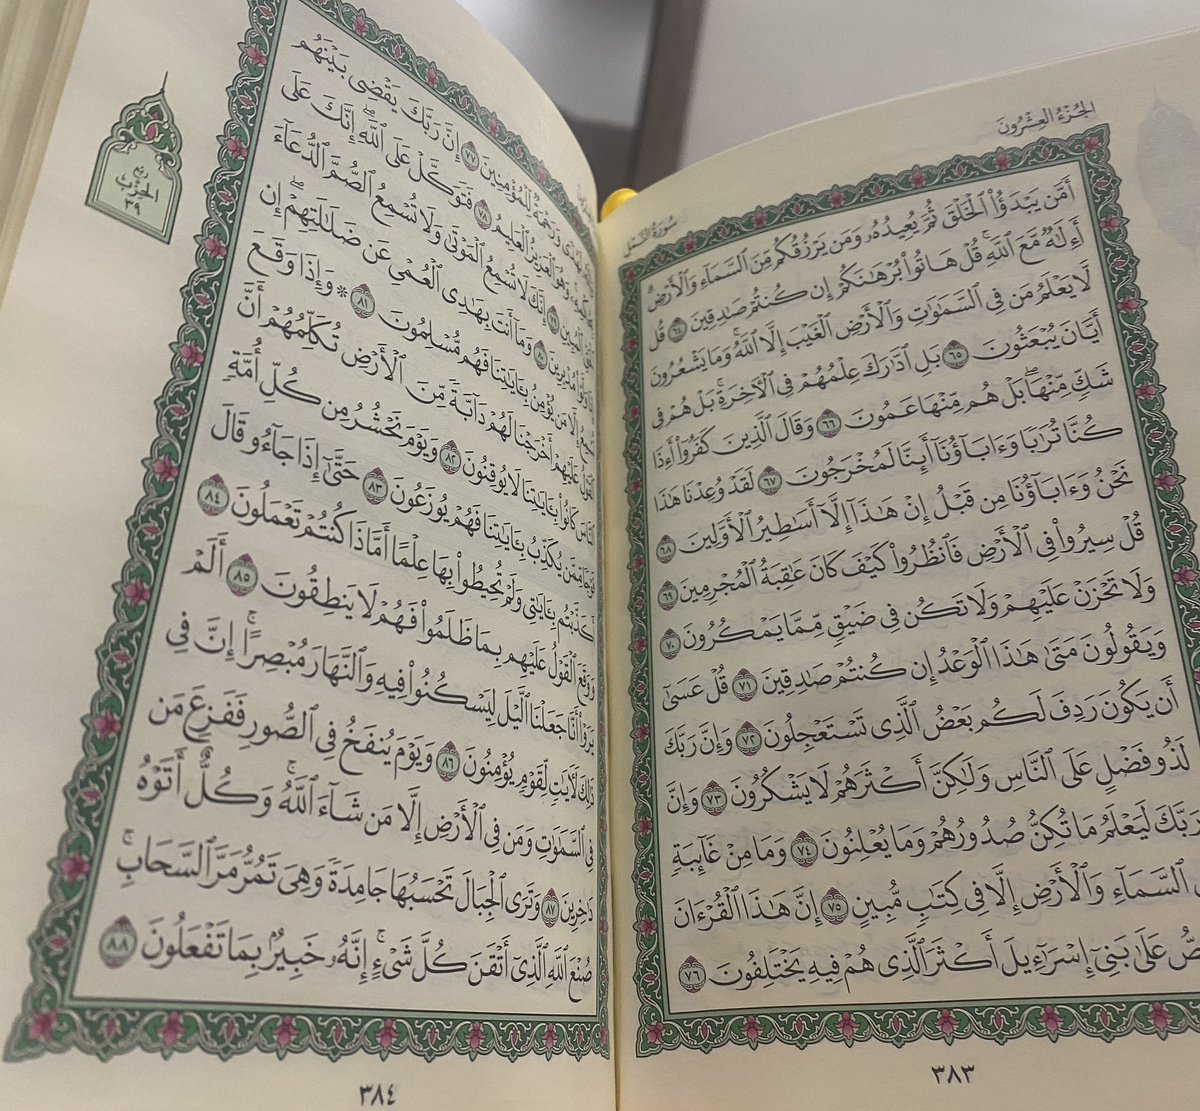 الجُزْءُ العِشْرُونَ
سُورَةُ النَّمْلِ
أَمَّن يَبْدَؤُاْ ٱلْخَلْقَ ثُمَّ يُعِيدُهُۥ وَمَن يَرْزُقُكُم مِّنَ ٱلسَّمَآءِ وَٱلْأَرْضِۗ
أَءِلَٰهٌ مَّعَ ٱللَّهِۚ قُلْ هَاتُواْ بُرْهَٰنَكُمْ إِن كُنتُمْ صَٰدِقِينَ ٦٤ قُل
لَّا يَعْلَمُ مَن فِى ٱلسَّمَٰوَٰتِ وَٱلْأَرْضِ ٱلْغَيْبَ إِلَّا ٱللَّهُۚ وَمَا يَشْعُرُونَ
أَيَّانَ يُبْعَثُونَ ٦٥ بَلِ ٱدَّٰرَكَ عِلْمُهُمْ فِى ٱلْأٓخِرَةِۚ بَلْ هُمْ فِى
شَكٍّ مِّنْهَاۖ بَلْ هُم مِّنْهَا عَمُونَ ٦٦ وَقَالَ ٱلَّذِينَ كَفَرُوٓاْ أَءِذَا
كُنَّا تُرَٰبًا وَءَابَآؤُنَآ أَئِنَّا لَمُخْرَجُونَ ٦٧ لَقَدْ وُعِدْنَا هَٰذَا
نَحْنُ وَءَابَآؤُنَا مِن قَبْلُ إِنْ هَٰذَآ إِلَّآ أَسَٰطِيرُ ٱلْأَوَّلِينَ ٦٨
قُلْ سِيرُواْ فِى ٱلْأَرْضِ فَٱنظُرُواْ كَيْفَ كَانَ عَٰقِبَةُ ٱلْمُجْرِمِينَ ٦٩
وَلَا تَحْزَنْ عَلَيْهِمْ وَلَا تَكُن فِى ضَيْقٍ مِّمَّا يَمْكُرُونَ ٧٠
وَيَقُولُونَ مَتَىٰ هَٰذَا ٱلْوَعْدُ إِن كُنتُمْ صَٰدِقِينَ ٧١ قُلْ عَسَىٰٓ
أَن يَكُونَ رَدِفَ لَكُم بَعْضُ ٱلَّذِى تَسْتَعْجِلُونَ ٧٢ وَإِنَّ رَبَّكَ
لَذُو فَضْلٍ عَلَى ٱلنَّاسِ وَلَٰكِنَّ أَكْثَرَهُمْ لَا يَشْكُرُونَ ٧٣ وَإِنَّ
رَبَّكَ لَيَعْلَمُ مَا تُكِنُّ صُدُورُهُمْ وَمَا يُعْلِنُونَ ٧٤ وَمَا مِنْ غَآئِبَةٍ
ٱلسَّمَآءِ وَٱلْأَرْضِ إِلَّا فِى كِتَٰبٍ مُّبِينٍ ٧٥ إِنَّ هَٰذَا ٱلْقُرْءَانَ
عَلَىٰ بَنِىٓ إِسْرَٰٓءِيلَ أَكْثَرَ ٱلَّذِى هُمْ فِيهِ يَخْتَلِفُونَ ٧٦
٣٨٣
لَهُدًى وَرَحْمَةٌ لِّلْمُؤْمِنِينَ ٧٧ إِنَّ رَبَّكَ يَقْضِى بَيْنَهُم
وَهُوَ ٱلْعَزِيزُ ٱلْعَلِيمُ ٧٨ فَتَوَكَّلْ عَلَى ٱللَّهِۖ إِنَّكَ عَلَى
ٱلْمُبِينِ ٧٩ إِنَّكَ لَا تُسْمِعُ ٱلْمَوْتَىٰ وَلَا تُسْمِعُ ٱلصُّمَّ ٱلدُّعَآءَ
مُدْبِرِينَ ٨٠ وَمَآ أَنتَ بِهَٰدِى ٱلْعُمْىِ عَن ضَلَٰلَتِهِمْۖ إِن
تُسْمِعُ إِلَّا مَن يُؤْمِنُ بِـَٔايَٰتِنَا فَهُم مُّسْلِمُونَ ٨١ * وَإِذَا وَقَعَ
ٱلْقَوْلُ عَلَيْهِمْ أَخْرَجْنَا لَهُمْ دَآبَّةً مِّنَ ٱلْأَرْضِ تُكَلِّمُهُمْ أَنَّ
ٱلنَّاسَ كَانُواْ بِـَٔايَٰتِنَا لَا يُوقِنُونَ ٨٢ وَيَوْمَ نَحْشُرُ مِن كُلِّ أُمَّةٍ
فَوْجًا مِّمَّن يُكَذِّبُ بِـَٔايَٰتِنَا فَهُمْ يُوزَعُونَ ٨٣ حَتَّىٰٓ إِذَا جَآءُو قَالَ
أَكَذَّبْتُم بِـَٔايَٰتِى وَلَمْ تُحِيطُواْ بِهَا عِلْمًا أَمَّاذَا كُنتُمْ تَعْمَلُونَ ٨٤
وَوَقَعَ ٱلْقَوْلُ عَلَيْهِم بِمَا ظَلَمُواْ فَهُمْ لَا يَنطِقُونَ ٨٥ أَلَمْ
يَرَوْاْ أَنَّا جَعَلْنَا ٱلَّيْلَ لِيَسْكُنُواْ فِيهِ وَٱلنَّهَارَ مُبْصِرًاۚ إِنَّ فِى
ذَٰلِكَ لَأٓيَٰتٍ لِّقَوْمٍ يُؤْمِنُونَ ٨٦ وَيَوْمَ يُنفَخُ فِى ٱلصُّورِ فَفَزِعَ مَن
فِى ٱلسَّمَٰوَٰتِ وَمَن فِى ٱلْأَرْضِ إِلَّا مَن شَآءَ ٱللَّهُۚ وَكُلٌّ أَتَوْهُ
دَٰخِرِينَ ٨٧ وَتَرَى ٱلْجِبَالَ تَحْسَبُهَا جَامِدَةً وَهِىَ تَمُرُّ مَرَّ ٱلسَّحَابِۚ
صُنْعَ ٱللَّهِ ٱلَّذِىٓ أَتْقَنَ كُلَّ شَىْءٍۚ إِنَّهُۥ خَبِيرٌۢ بِمَا تَفْعَلُونَ ٨٨
ربع
الحزب
٣٩
٣٨٤